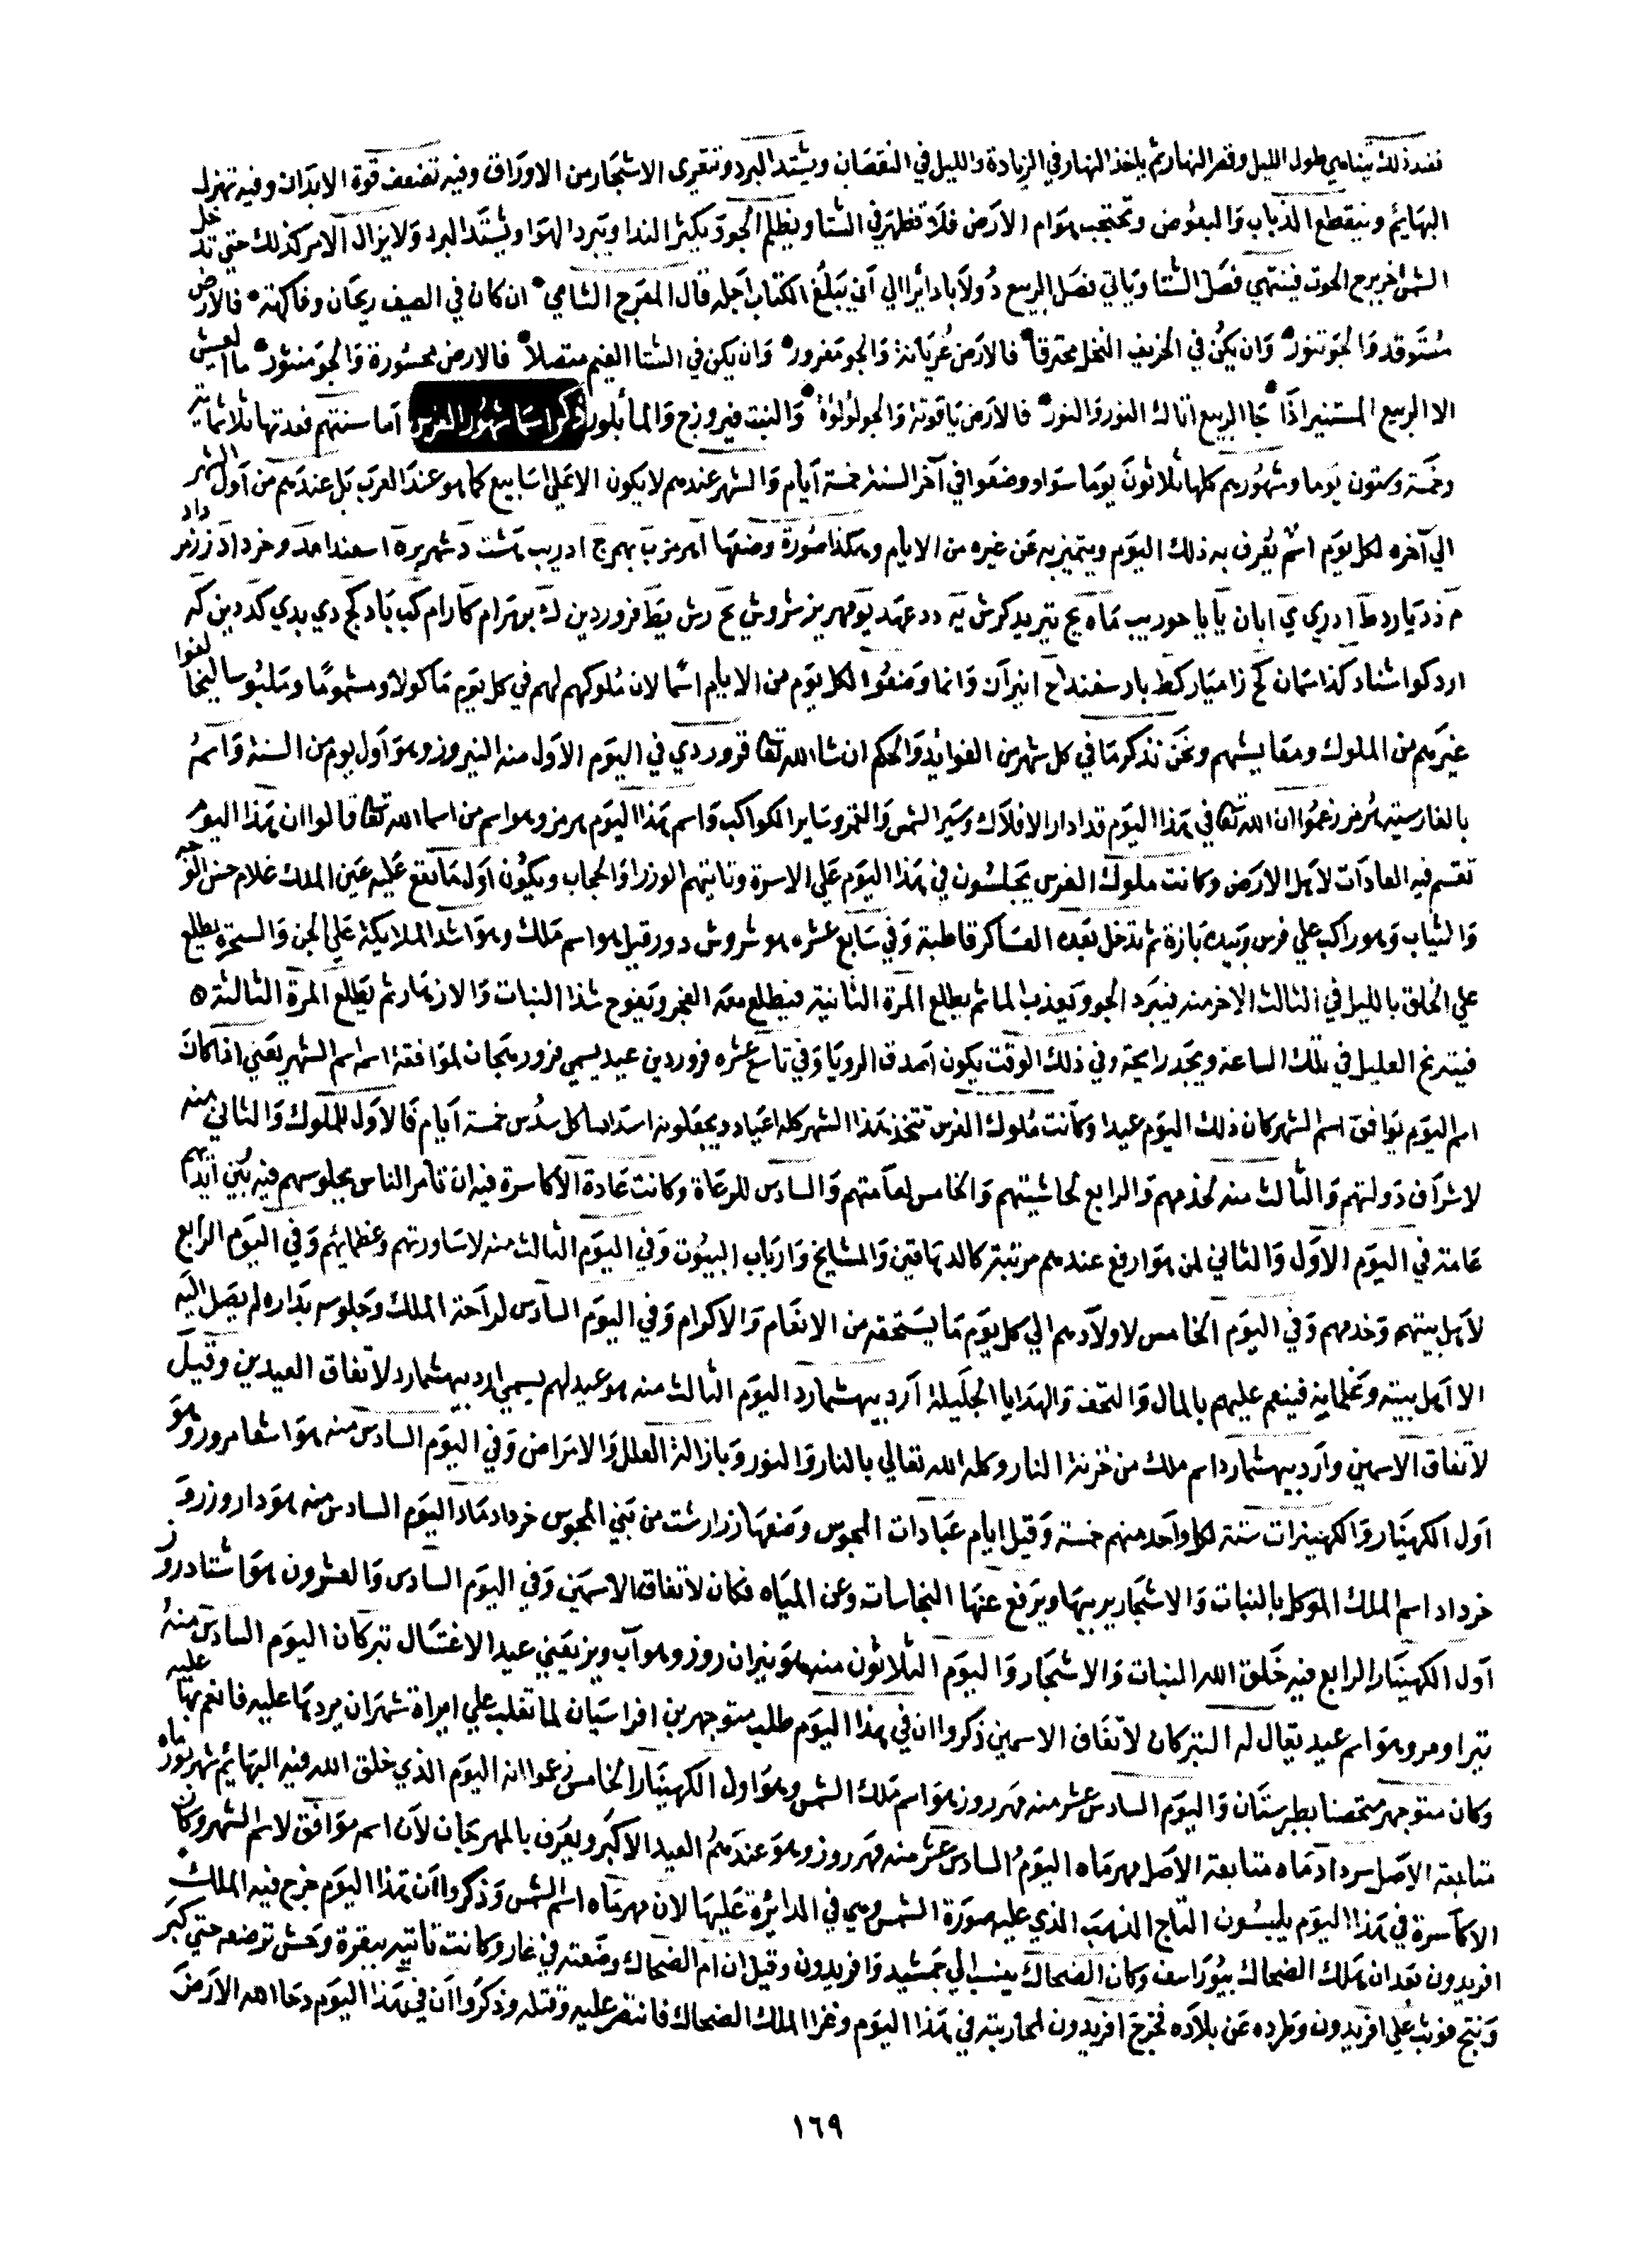 فعند ذلك يتناهي طول الليل وقصر النهار ثم ياخذ النهار في الزيادة والليل في النقصان ويشتد البرد وتتعري الاشجار من الاوراق وفيه تضعف قوة الابدان وفيه تهزل
البهايم وينقطع الذباب والبعوض وتحتجب هوام الارض فلا تظهر في الشتا ويظلم الجو ويكثر الندا ويبرد الهوا ويشتد البرد ولا يزال الامر كذلك حتي تدخل
الشمس اخر برج الحوت فينتهي فصل الشتا وياتي فصل الربيع دولابا دايرا الي ان يبلغ الكتاب اجله قال المفرج الشامي ان كان في الصيف ريحان وفاكهة فالارض
مستوقد والجو تنور وان يكن في الخريف النخل محترقا فالارض عريانة والجو مقرور وان يكن في الشتا الغيم متصلا فالارض محسورة والجو منثور ما العيش
الا الربيع المستنير اذا جا الربيع اتاك النور والنور فالارض ياقوتة والجو لولوة والنبت فيروزج والما بلور ذكر اسما شهور الفرس اما سنتهم فعدتها ثلاثماية
وخمسة وستون يوما وشهورهم كلها ثلاثون يوما سواء ووضعوا في آخر السنة خمسة ايام والشهر عندهم لا يكون الا علي اسابيع كما هو عند العرب بل عندهم من اول الشهر
الي آخره لكل يوم اسم يعرف به ذلك اليوم ويتميز به عن غيره من الايام وهكذا صورة وضعها
لكل يوم من الايام اسما لان ملوكهم لهم في كل يوم ماكولا ومشموما وملبوسا ليخالفوا
غيرهم من الملوك ومعايشهم ونحن نذكر ما في كل شهر من الفوائد والحكم ان شا الله تعا في اليوم الاول منه النيروز وهو اول يوم من السنة واسمه
بالفارسية هرمز زعموا ان الله تعا في هذا اليوم قد ادار الافلاك وسير الشمس والقمر وساير الكواكب واسم هذا اليوم هرمز وهو اسم من اسما الله تعا قالوا ان هذا اليوم
تقسم فيه العادات لاهل الارض وكانت ملوك الفرس يجلسون في هذا اليوم علي الاسرة وتاتيهم الوزرا والحجاب ويكون اول ما تقع عليه عين الملك غلام حسن الوجه
والثياب وهو راكب علي فرس وبيده بازة ثم تدخل بعده العساكر قاطبة وفي سابع عشره هو شروش دور قيل هو اسم ملك وهو اشد الملايكة علي الجن والسحرة يطلع
علي الخلق بالليل في الثالث الاخر منه فيبرد الجو ويعذب الما ثم يطلع المرة الثانية فيطلع معه الفجر ويفوح شذا النبات والازهار ثم يطلع المرة الثالثة
فيتريح العليل في تلك الساعة ويجد رايحة وفي ذلك الوقت يكون اصدق الرويا وفي تاسع عشره فروردين عيد يسمي فرورمتجان لموافقة اسمه اسم الشهر يعني اذا كان
اسم اليوم يوافق اسم الشهر كان ذلك اليوم عيدا وكانت ملوك الفرس تتخذ هذا الشهر كله اعياد ويجعلونه اسداسا كل سدس خمسة ايام فالاول للملوك والثاني منه
لاشراف دولتهم والثالث منه لخدمهم والرابع لحاشيتهم والخامس لعامتهم والسادس للرعاة وكانت عادة الاكاسرة فيه ان تامر الناس بجلوسهم فيه بين ايديهم
عامة في اليوم الاول والثاني لمن هو ارفع عندهم مرتبة كالدهاقين والمشايخ وارباب البيوت وفي اليوم الثالث منه لاساورتهم وعظمائهم وفي اليوم الرابع
لاهل بيتهم وخدمهم وفي اليوم الخامس لاولادهم الي كل يوم ما يستحقه من الانعام والاكرام وفي اليوم السادس لراحة الملك وجلوسه بداره لم يصل اليه
الا اهل بيته وغلمانه فينعم عليهم بالمال والتحف والهدايا الجليلة ارديبهشمارد اليوم الثالث منه هو عيد لهم يسمي ارديبهشمارد لاتفاق العيدين وقيل
لاتفاق الاسمين وارديبهشمارد اسم ملك من خزنة النار وكله الله تعالي بالنار والنور وبازالة العلل والامراض وفي اليوم السادس منه هو وهو
اول الكهنبار والكهنبرات ستة لكل واحد منهم خمسة وقيل ايام عبادات المجوس وضعها زرارشت من بني المجوس خردادماد اليوم السادس منه هو دار وزرو
خرداد اسم الملك الموكل بالنبات والاشجار يربيها ويرفع عنها النجاسات وعن المياه فكان لاتفاق الاسمين وفي اليوم السادس والعشرون هو اشتادروز
اول الكهنبار الرابع فيه خلق الله النبات والاشجار واليوم الثلاثون منه هو نيران روز وهو آب ويز يعني عيد الاغتسال تيركان اليوم السادس منه
تيرا ومر وهو اسم عيد يقال له التيركان لاتفاق الاسمين ذكروا ان في هذا اليوم طلب منوجهر من افراسيان لما تغلب علي ايراة شهران يردها عليه فانعم بها عليه
وكان منوجهر متحصنا بطبرستان واليوم السادس عشر منه مهر روز هو اسم ملك الشمس وهو اول الكهنبار الخامس زعموا انه اليوم الذي خلق الله فيه البهايم شهريورماه
متابعة الاصل مردادماه متابعة الاصل مهرماه اليوم السادس عشر منه مهر روز وهو عندهم العيد الاكبر ويعرف بالمهرجان لان اسم موافق لاسم الشهر وكان
الاكاسرة في هذا اليوم يلبسون التاج الذهب الذي عليه صورة الشمس وهي في الدائرة عليها لان مهرماه اسم الشمس وذكروا ان هذا اليوم خرج فيه الملك
افريدون بعد ان هلك الضحاك بيوراسف وكان الضحاك ينسب الي جمشيد وافريدون وقيل ان ام الضحاك وضعته في غار وكانت تاتيه ببقرة وحش ترضعه حتي كبر
ونتج فوثب علي افريدون وطرده عن بلاده فخرج افريدون لمحاربته في هذا اليوم وغزا الملك الضحاك فانتصر عليه وقتله وذكروا ان في هذا اليوم دحا الله الارض
١٦٩